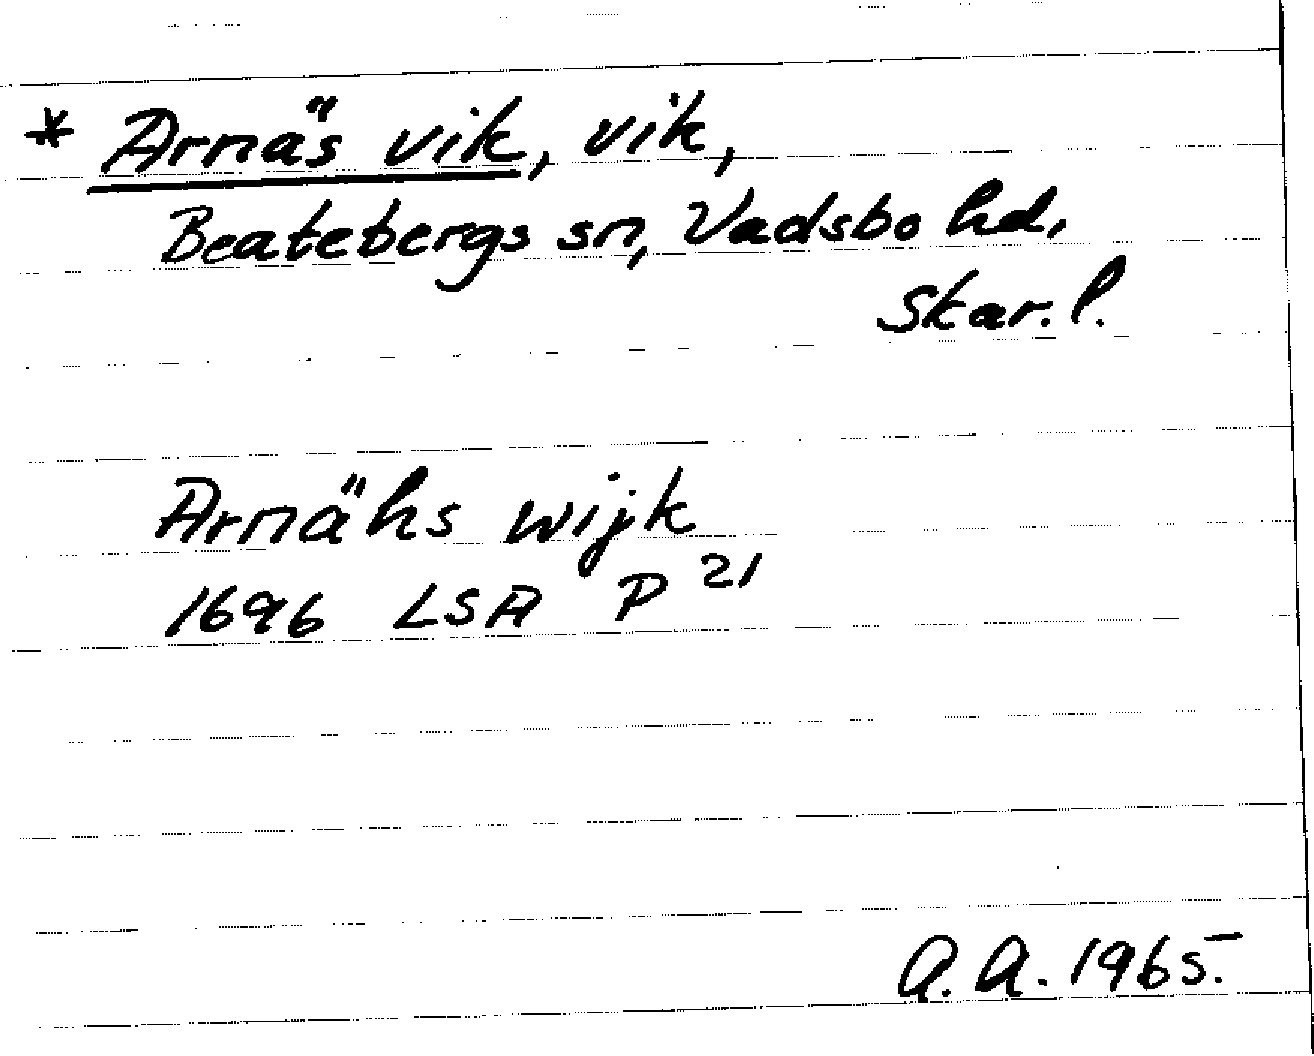 * Arnäs vik, vik,
Beatebergs sn, Vadsbo hd,
Skar. l.
Arnähs wijk
1696 LSA P 21
A.A. 1965.